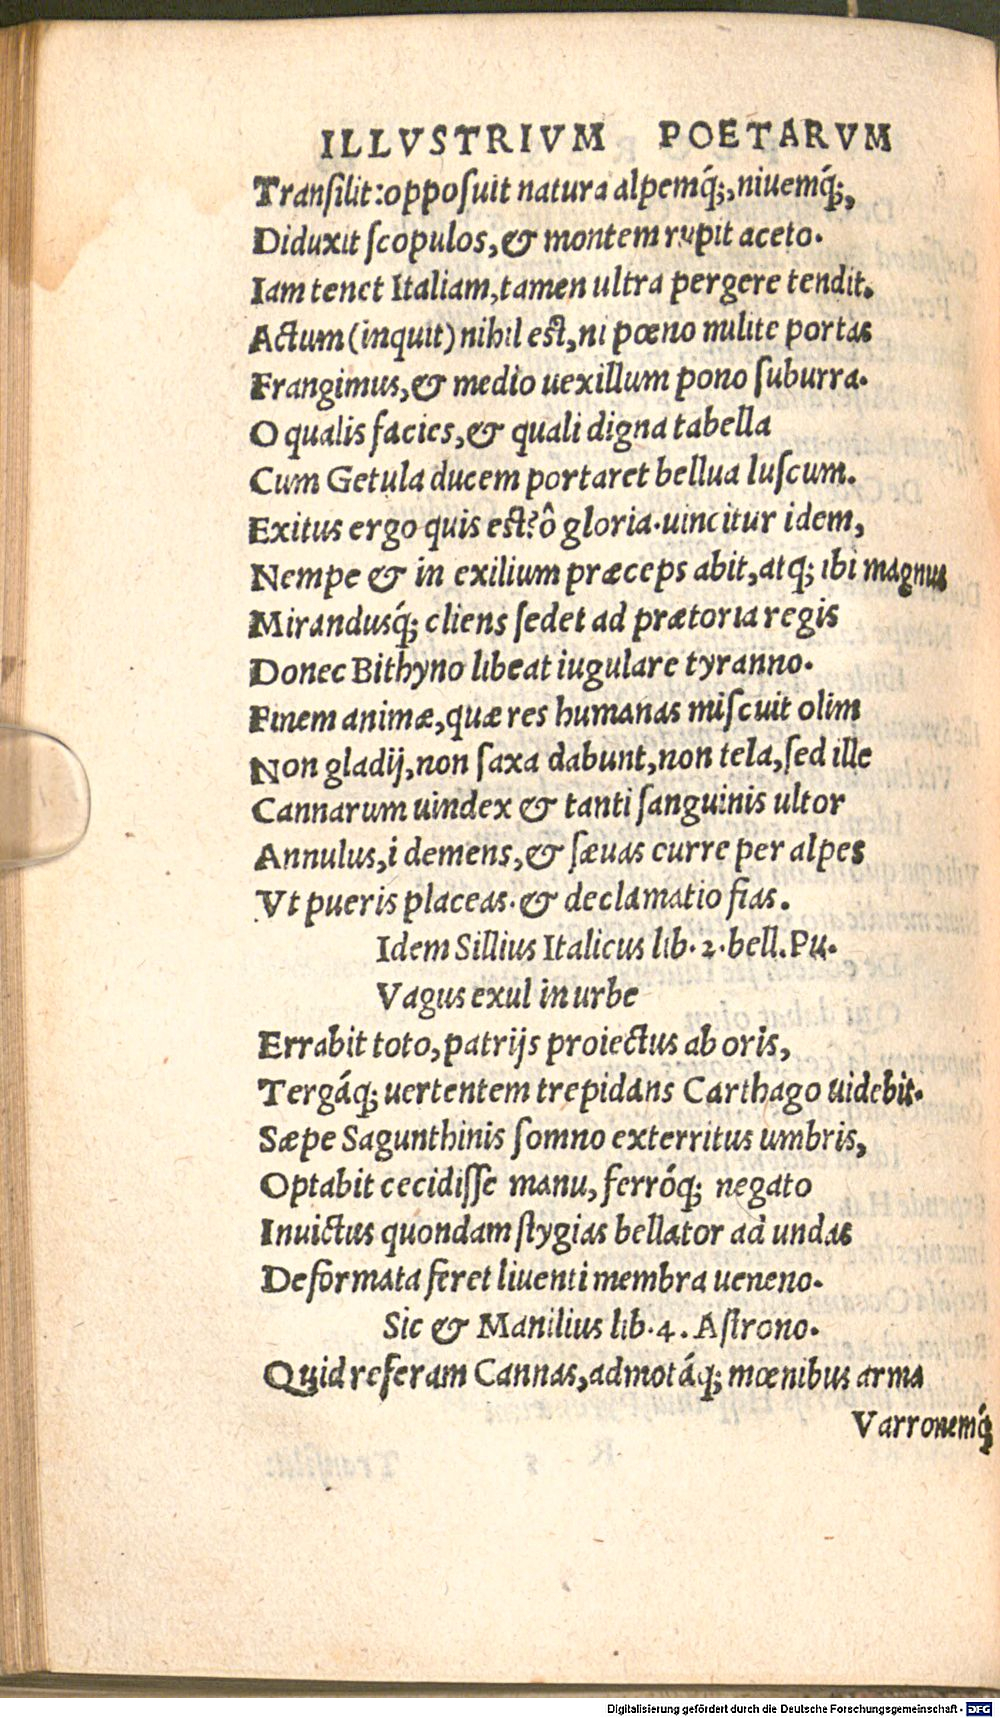 ILLVSTRIVM POETARVM
Tranſilit:oppoſuit natura alpemq́;,niuemq́;,
Diduxit ſcopulos,& montem rupit aceto.
Iam tenet Italiam,tamen ultra pergere tendit.
Actum (inquit) nihil eſt,ni pœno milite portas
Frangimus,& medio uexillum pono ſuburra.
O qualis facies,& quali digna tabella
Cum Getula ducem portaret bellua luſcum.
Exitus ergo quis eſt?ô gloria.uincitur idem,
Nempe & in exilium præceps abit,atq; ibi magnus
Mirandusq́; cliens ſedet ad prætoria regis
Donec Bithyno libeat iugulare tyranno.
Finem animæ,quæ res humanas miſcuit olim
Non gladij,non ſaxa dabunt,non tela,ſed ille
Cannarum uindex & tanti ſanguinis ultor
Annulus,i demens,& ſæuas curre per alpes
Vt pueris placeas.& declamatio fias.
Idem Sillius Italicus lib.2.bell.Pu.
Vagus exul in urbe
Errabit toto,patrijs proiectus ab oris,
Tergáq; uertentem trepidans Carthago uidebit.
Sæpe Sagunthinis ſomno exterritus umbris,
Optabit cecidiſſe manu,ferróq; negato
Inuictus quondam ſtygias bellator ad undas
Deformata feret liuenti membra ueneno.
Sic & Manilius lib.4.Aſtrono.
Quid referam Cannas,admotáq; mœnibus arma
Varronemq́;
Digitalisierung gefördert durch die Deutsche Forschungsgemeinschaft - DFG